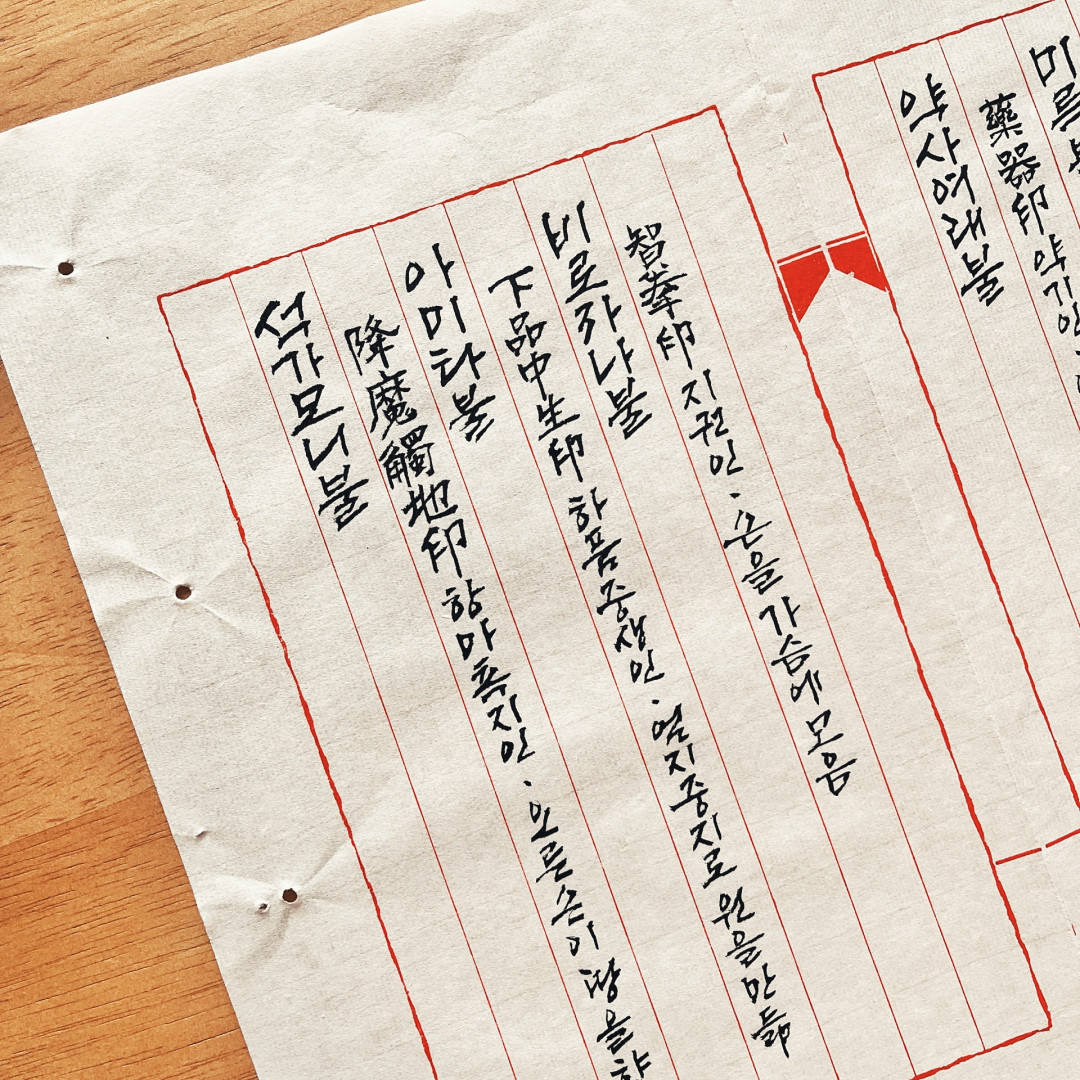 석가모니불
降魔觸地印 항마촉지인·오른손이 땅을 향
아미타불
下品中生印 하품중생인·엄지중지로 원을 만듦
비로자나불
智拳印 지권인·손을 가슴에 모음
약사여래불
藥器印 약기인·